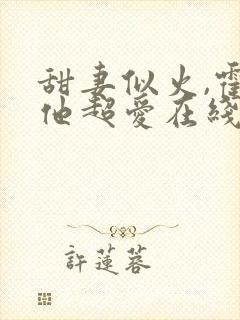 甜妻似火,霍
他超爱在线
許蓮蓉